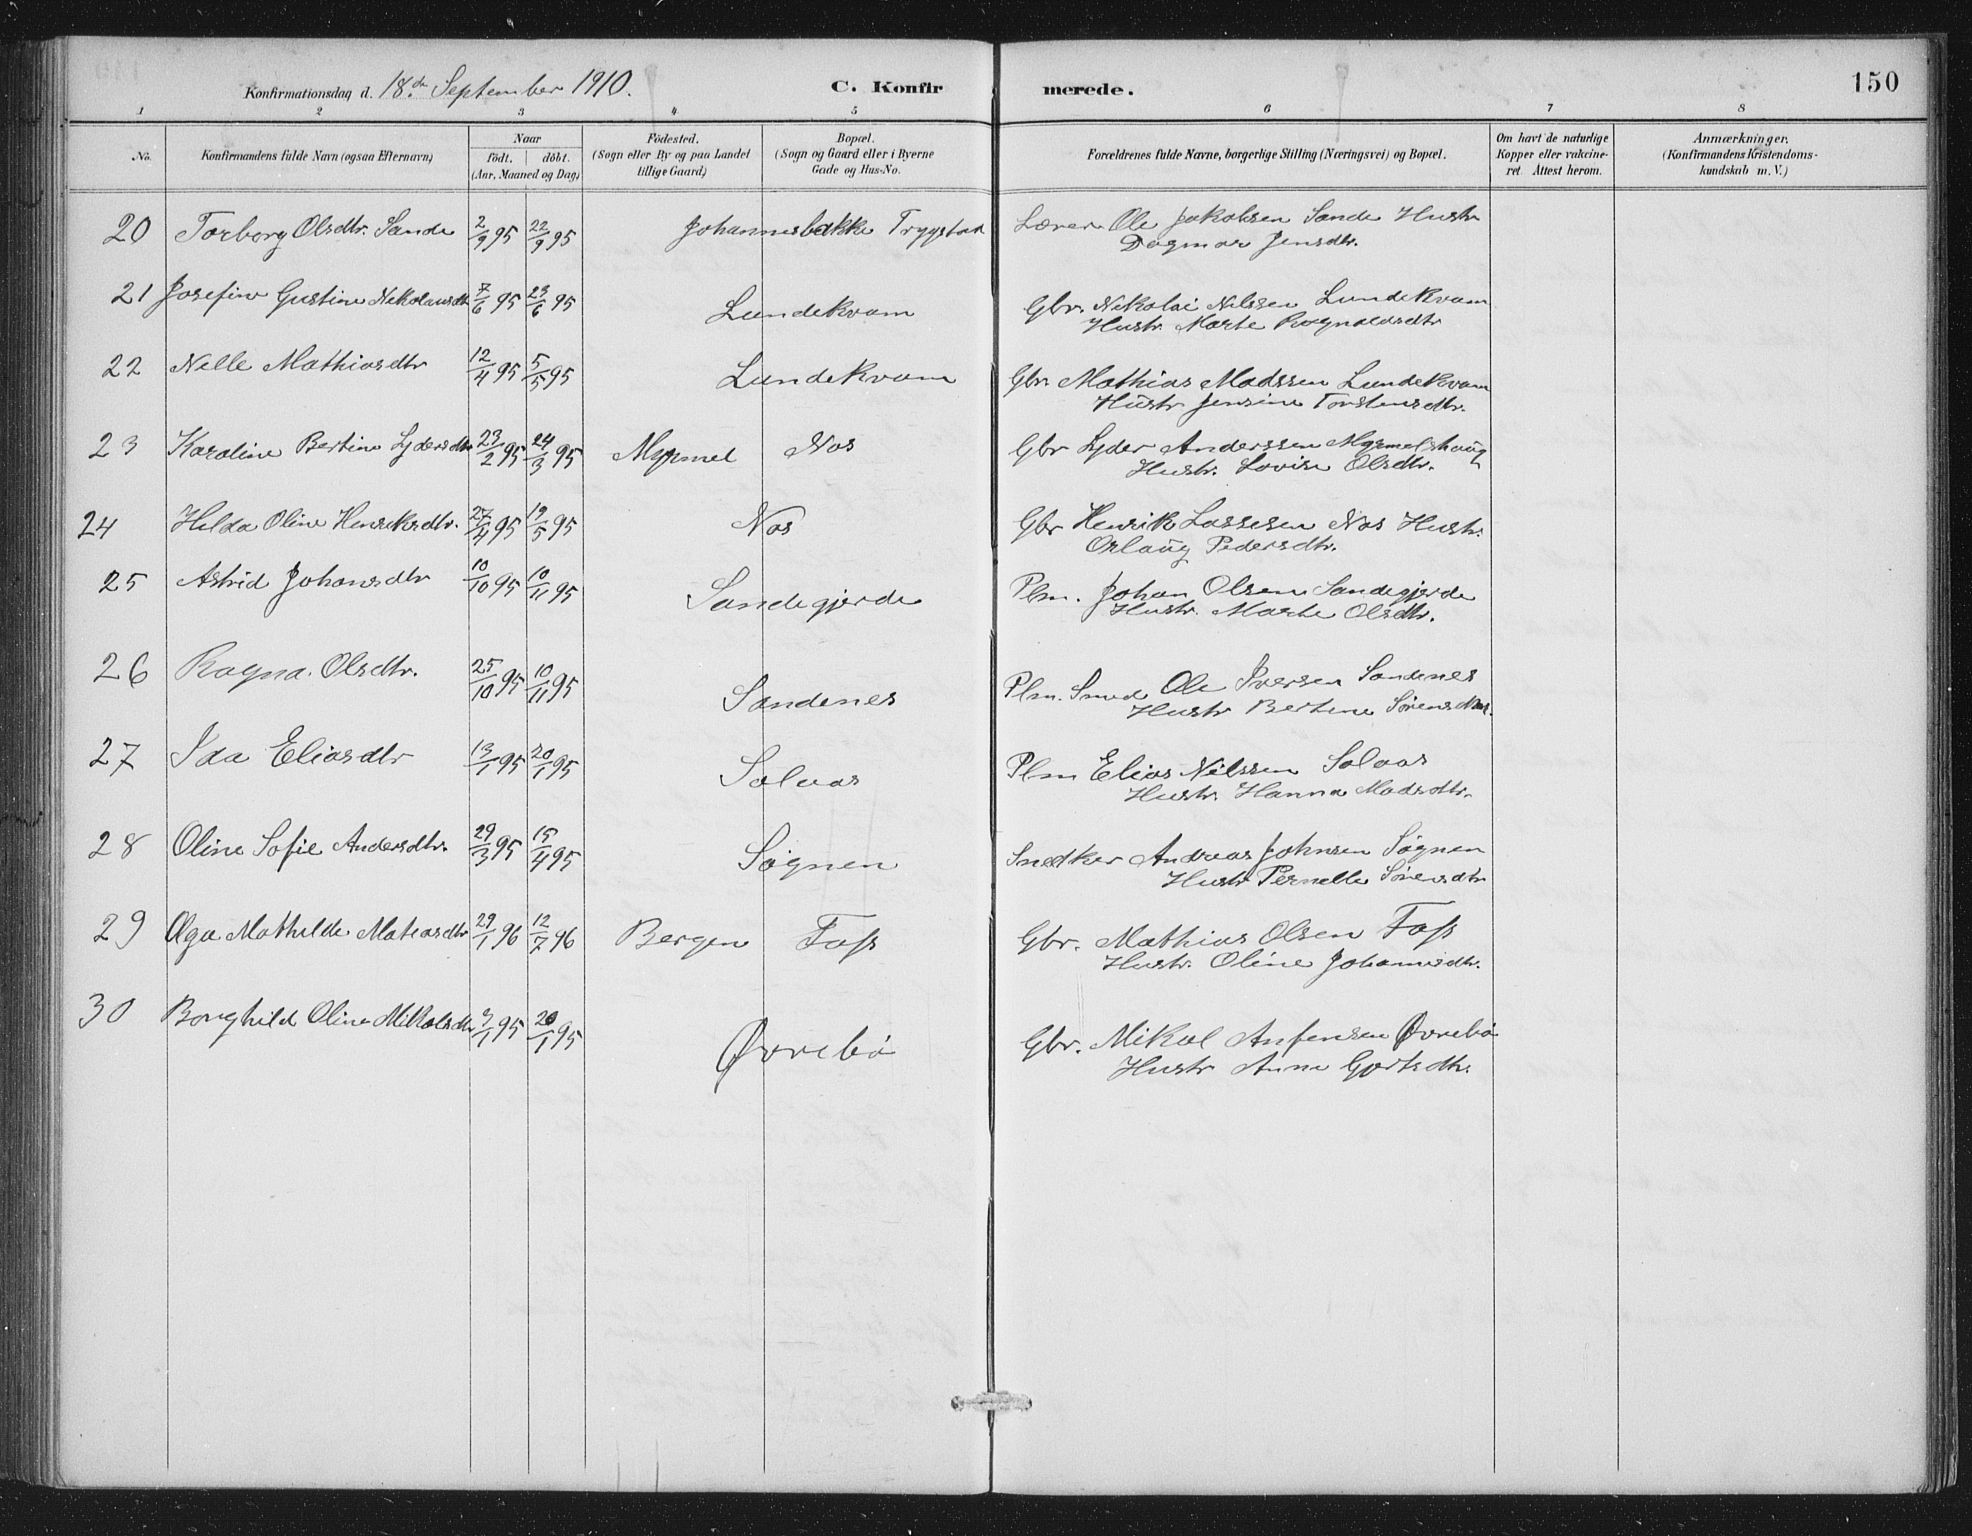 Konfirmationsdag d. 18.de September 1910. C. Konfirmerede. 150
1 2 3 4 5 6 7 8
No. Konfirmandens fulde Navn (ogsaa Efternavn) Naar födt. döbt. (Aar, Maaned og Dag) Födested. (Sogn eller By og paa Landet tillige Gaard) Bopæl. (Sogn og Gaard eller i Byerne Gade og Hus-No. Forældrenes fulde Navne, borgerlige Stilling (Næringsvei) og Bopæl. Om havt de naturlige Kopper eller vakcineret. Attest herom. Anmærkninger. (Konfirmandens Kristendomskundskab m. V.)
20 Torborg Olsdtr. Sande 2/9 95 22/9 95 Johannesbakke Trygstad Lærer Ole Jakobsen Sande Hustr
Dagmar Jensdtr.
21 Josefine Gustine Nikolaisdtr 7/6 95 23/6 95 Lundekvam Gbr. Nikolai Nilssen Lundekvam
Hustr. Marte Ragnaldsdtr
22 Nelle Mathiasdtr 12/4 95 5/5 95 Lundekvam Gbr Mathias Madssen Lundekvam
Hustr Jensine Torstensdtr.
23 Karoline Bertine Lydersdtr 23/2 95 24/3 95 Myrmel Nos Gbr Lyder Anderssen Myrmelshaug
Hustr. Lovise Olsdtr.
24 Hilda Oline Henriksdtr. 27/4 95 19/5 95 Nos Gbr Henrik Lassesen Nos Hustr.
Orlaug Pedersdtr.
25 Astrid Johansdtr 10/10 95 10/11 95 Sandegjerde Plm. Johan Olsen Sandegjerde
Hustr. Marte Olsdtr.
26 Ragna Olsdtr. 25/10 95 10/11 95 Sandenes Plm. Smed Ole Iversen Sandenes
Hustr Bertine Sörensdtr.
27 Ida Eliasdtr 13/1 95 20/1 95 Solaas Plm Elias Nilssen Solaas
Hustr. Hanna Madsdtr.
28 Oline Sofie Andersdtr. 29/3 95 15/4 95 Sögnen Snedker Andreas Johnsen Sögnen
Hustr Pernelle Sörensdtr
29 Olga Mathilde Matiasdtr 29/1 96 12/7 96 Bergen Foss Gbr. Mathias Olsen Foss
Hustr. Oline Johannesdtr.
30 Borghild Oline Mikalsdtr 3/1 95 20/1 95 Øvrebö Gbr. Mikal Anfensen Øvrebö
Hustr Anna Gjertsdtr.